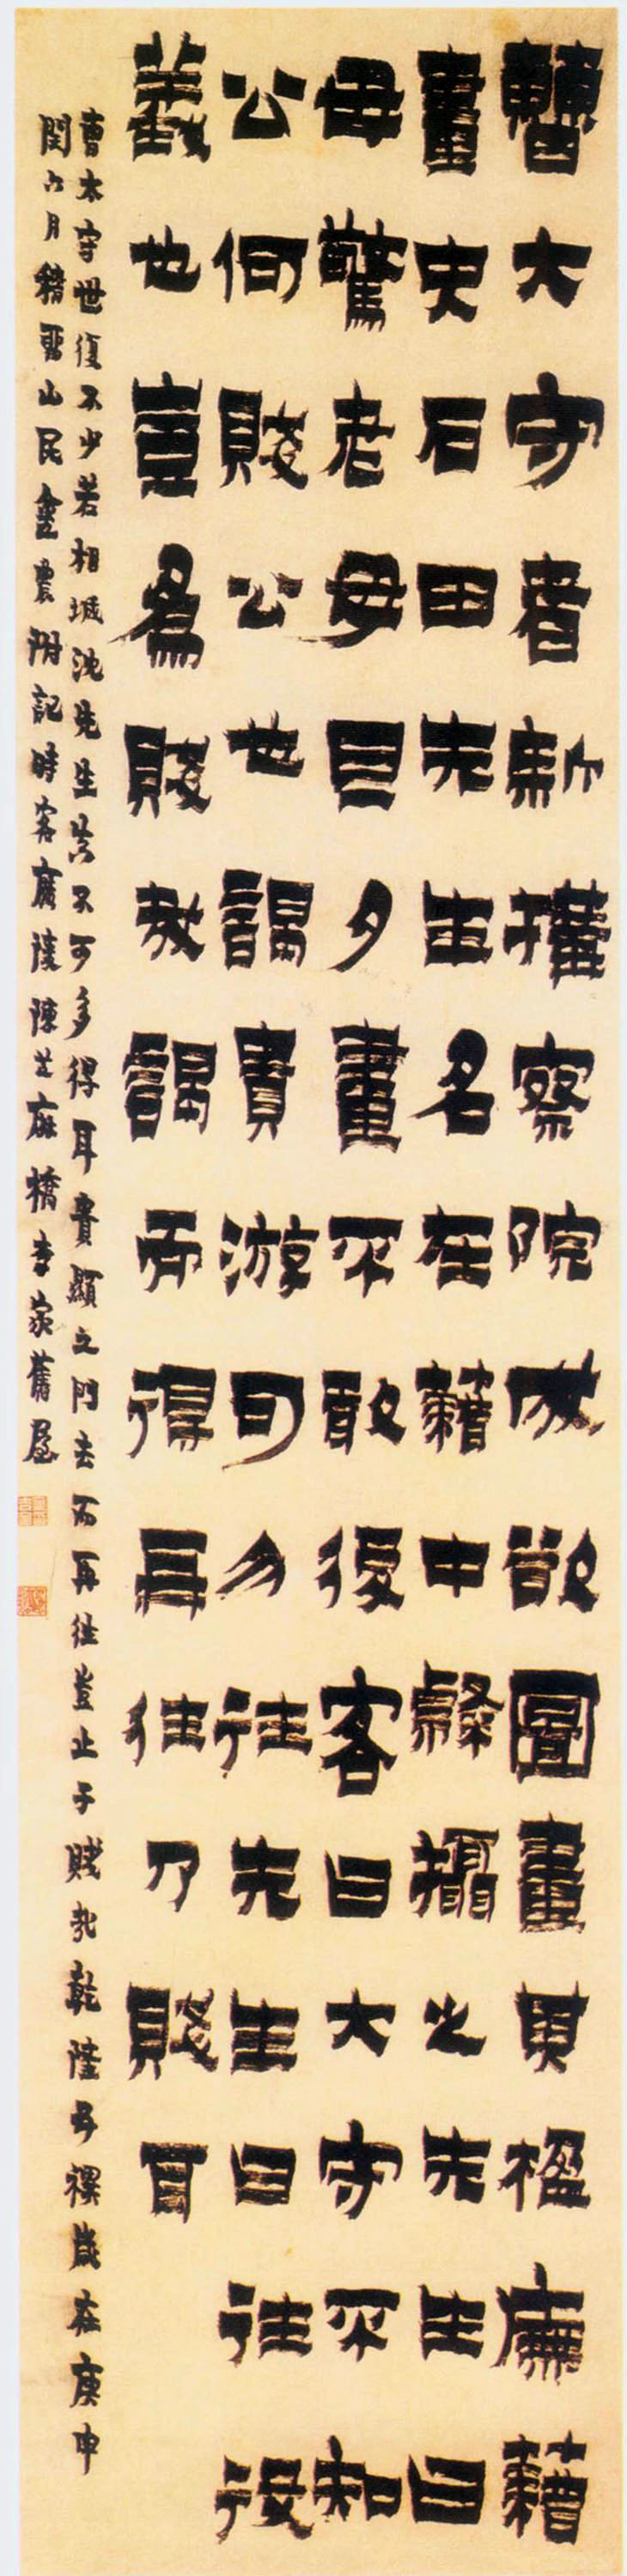 曹大守者新擢察院成欲圖畫其楹廡藉
畫史石田先生名在藉中隸攝之先生曰
毋驚老母旦夕畫不敢後客曰大守不知
公何賤公也謁貴游可勿往先生曰往役
義也豈爲賤哉謁而得再往乃賤耳
曹太守世復不少若相城沈先生眞不可多得耳貴顯之門去而再往豈止于賤哉乾隆五禩歲在庚申
閏六月稽留山民金農附記時客廣陵陳廟橋李家舊屋